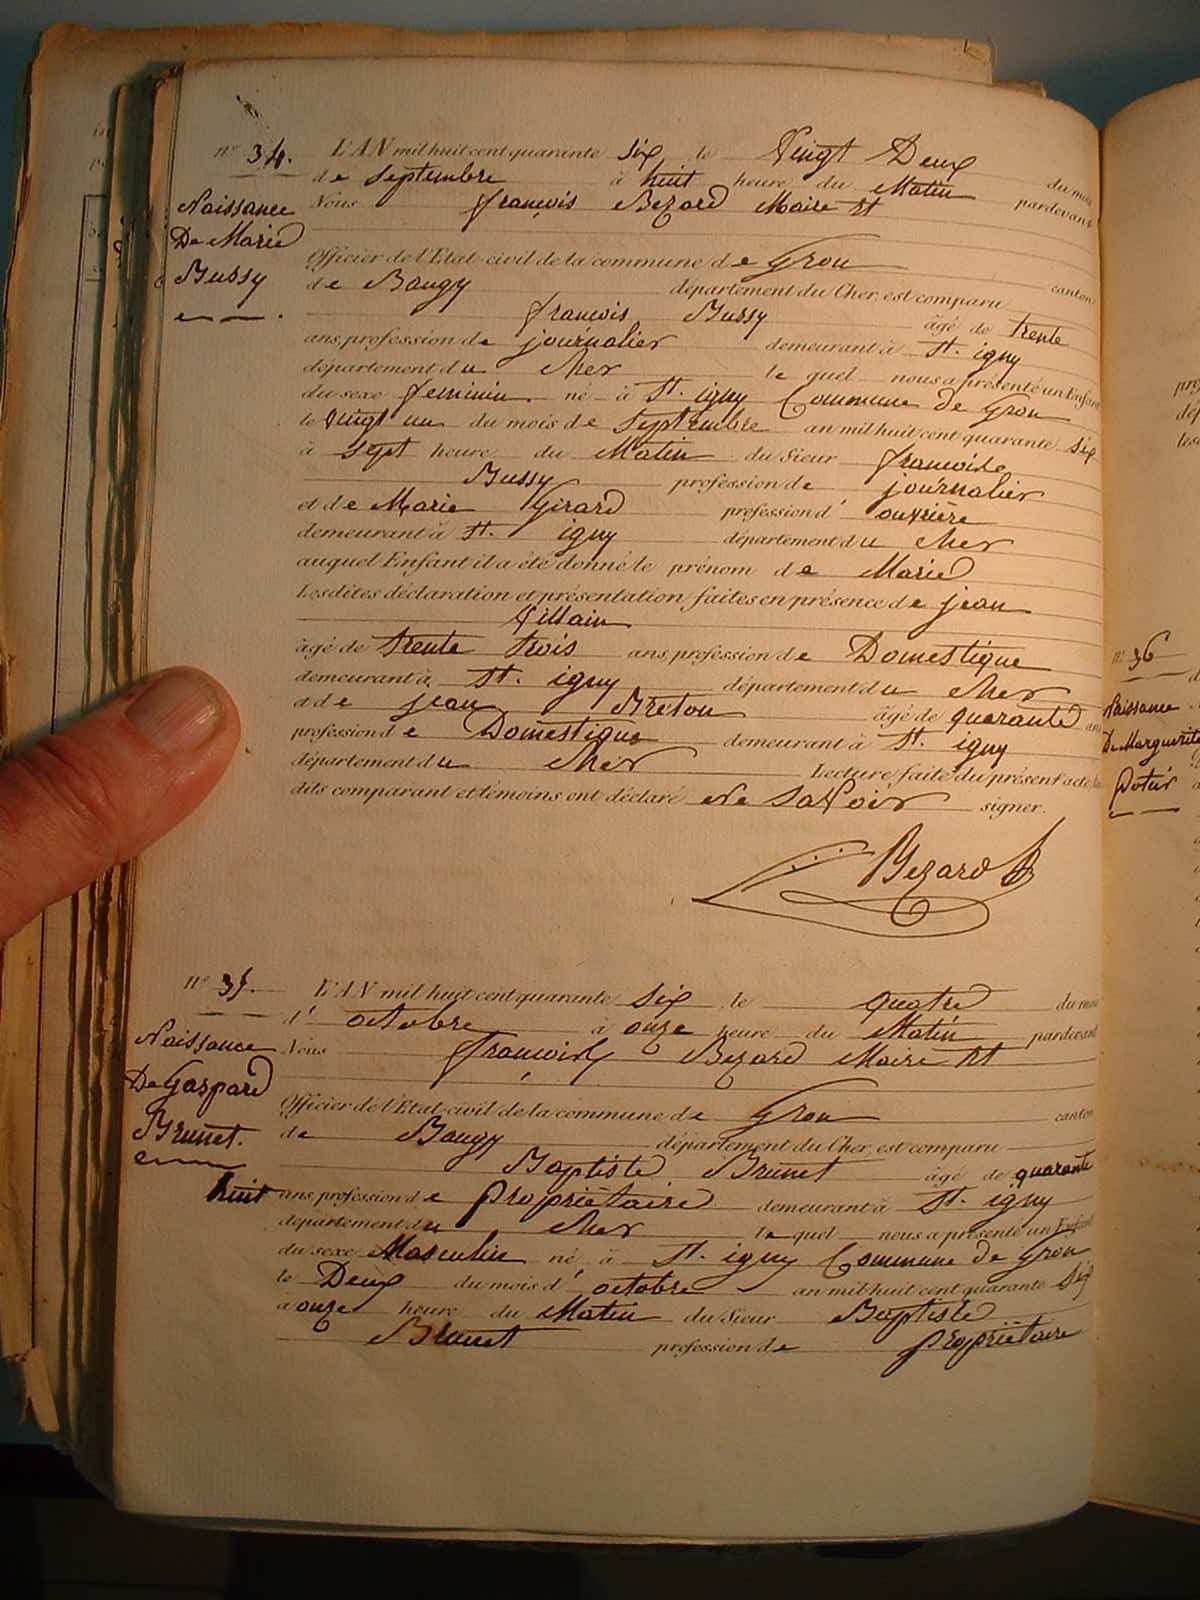 n° 34.
Naissance
De Marie
Bussy
L'AN mil huit cent quarante six, le Vingt Deux du mois
de Septembre à huit heure du Matin pardevant
Nous françois Bezard Maire et
Officier de l'Etat-civil de la commune de Gron canton
de Baugy département du Cher, est comparu
francois Bussy âgé de trente
ans, profession de journalier demeurant à St. igny
département du Cher le quel nous a présenté un Enfant
du sexe feminin né à St. igny Commune de Gron
le Vingt un du mois de Septembre an mil huit cent quarante six
à sept heure du Matin du Sieur francois
Bussy profession de journalier
et de Marie Girard profession d' ouvrière
demeurant à St. igny département du Cher
auquel Enfant il a été donné le prénom de Marie
Lesdites déclaration et présentation faites en présence de jean
Villain
âgé de trente trois ans, profession de Domestique
demeurant à St. igny département du Cher
et de jean Breton âgé de quarante ans
profession de Domestique demeurant à St. igny
département du Cher Lecture faite du présent acte, les
dits comparant et témoins ont déclaré Ne Savoir signer.
Bezard
n° 35.
Naissance
De Gaspard
Brunet.
L'AN mil huit cent quarante six le quatre du mois
d' octobre à onze heure du Matin pardevant
Nous francois Bezard Maire et
Officier de l'Etat-civil de la commune de Gron canton
de Baugy département du Cher, est comparu
Baptiste Brunet âgé de quarante
huit ans, profession de propriétaire demeurant à St. igny
département du Cher le quel nous a présenté un Enfant
du sexe Masculin né à St. igny Commune de Gron
le Deux du mois d' octobre an mil huit cent quarante six
à onze heure du Matin du Sieur Baptiste
Brunet profession de propriétaire
n° 36
Naissance
De Marguerite